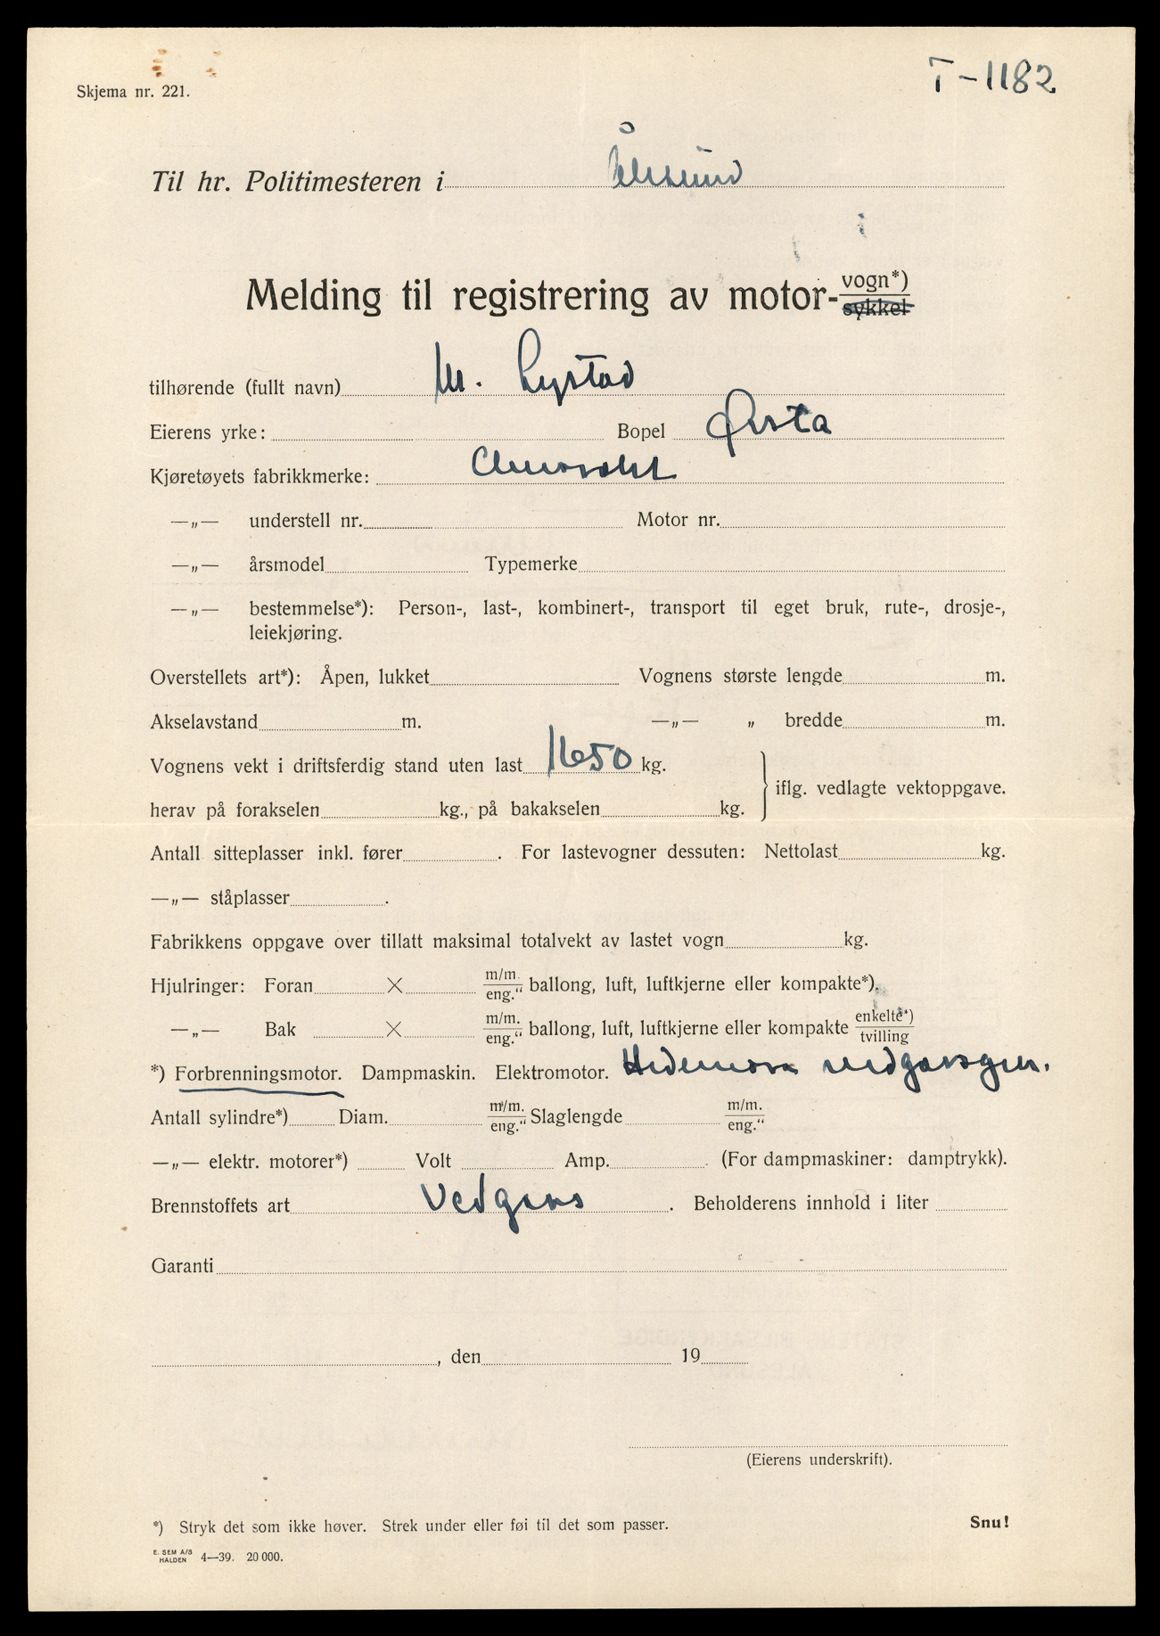 T-1182
Skjema nr. 221.
Til hr. Politimesteren i Ålesund
Melding til registrering av motor-vogn*)
sykkel
tilhørende (fullt navn) M. Lystad
Eierens yrke: Bopel Ørsta
Kjøretøyets fabrikkmerke: Chevrolet
—„— understell nr. Motor nr.
—„— årsmodel Typemerke
—„— bestemmelse*): Person-, last-, kombinert-, transport til eget bruk, rute-, drosje-,
leiekjøring.
Overstellets art*): Åpen, lukket Vognens største lengde m.
Akselavstand m. —„— „ bredde m.
Vognens vekt i driftsferdig stand uten last 1650 kg.
iflg. vedlagte vektoppgave.
herav på forakselen kg., på bakakselen kg.
Antall sitteplasser inkl. fører . For lastevogner dessuten: Nettolast kg.
—„— ståplasser .
Fabrikkens oppgave over tillatt maksimal totalvekt av lastet vogn kg.
Hjulringer: Foran × m/m. eng.“ ballong, luft, luftkjerne eller kompakte*).
—„— Bak × m/m. eng.“ ballong, luft, luftkjerne eller kompakte enkelte*) tvilling
*) Forbrenningsmotor. Dampmaskin. Elektromotor. Hedemora vedgassgen.
Antall sylindre*) Diam. m/m. eng.“ Slaglengde m/m. eng.“
—„— elektr. motorer*) Volt Amp. (For dampmaskiner: damptrykk).
Brennstoffets art Vedgass . Beholderens innhold i liter
Garanti
, den 19
(Eierens underskrift).
*) Stryk det som ikke høver. Strek under eller føi til det som passer.
Snu!
E. SEM A/S HALDEN 4—39. 20 000.